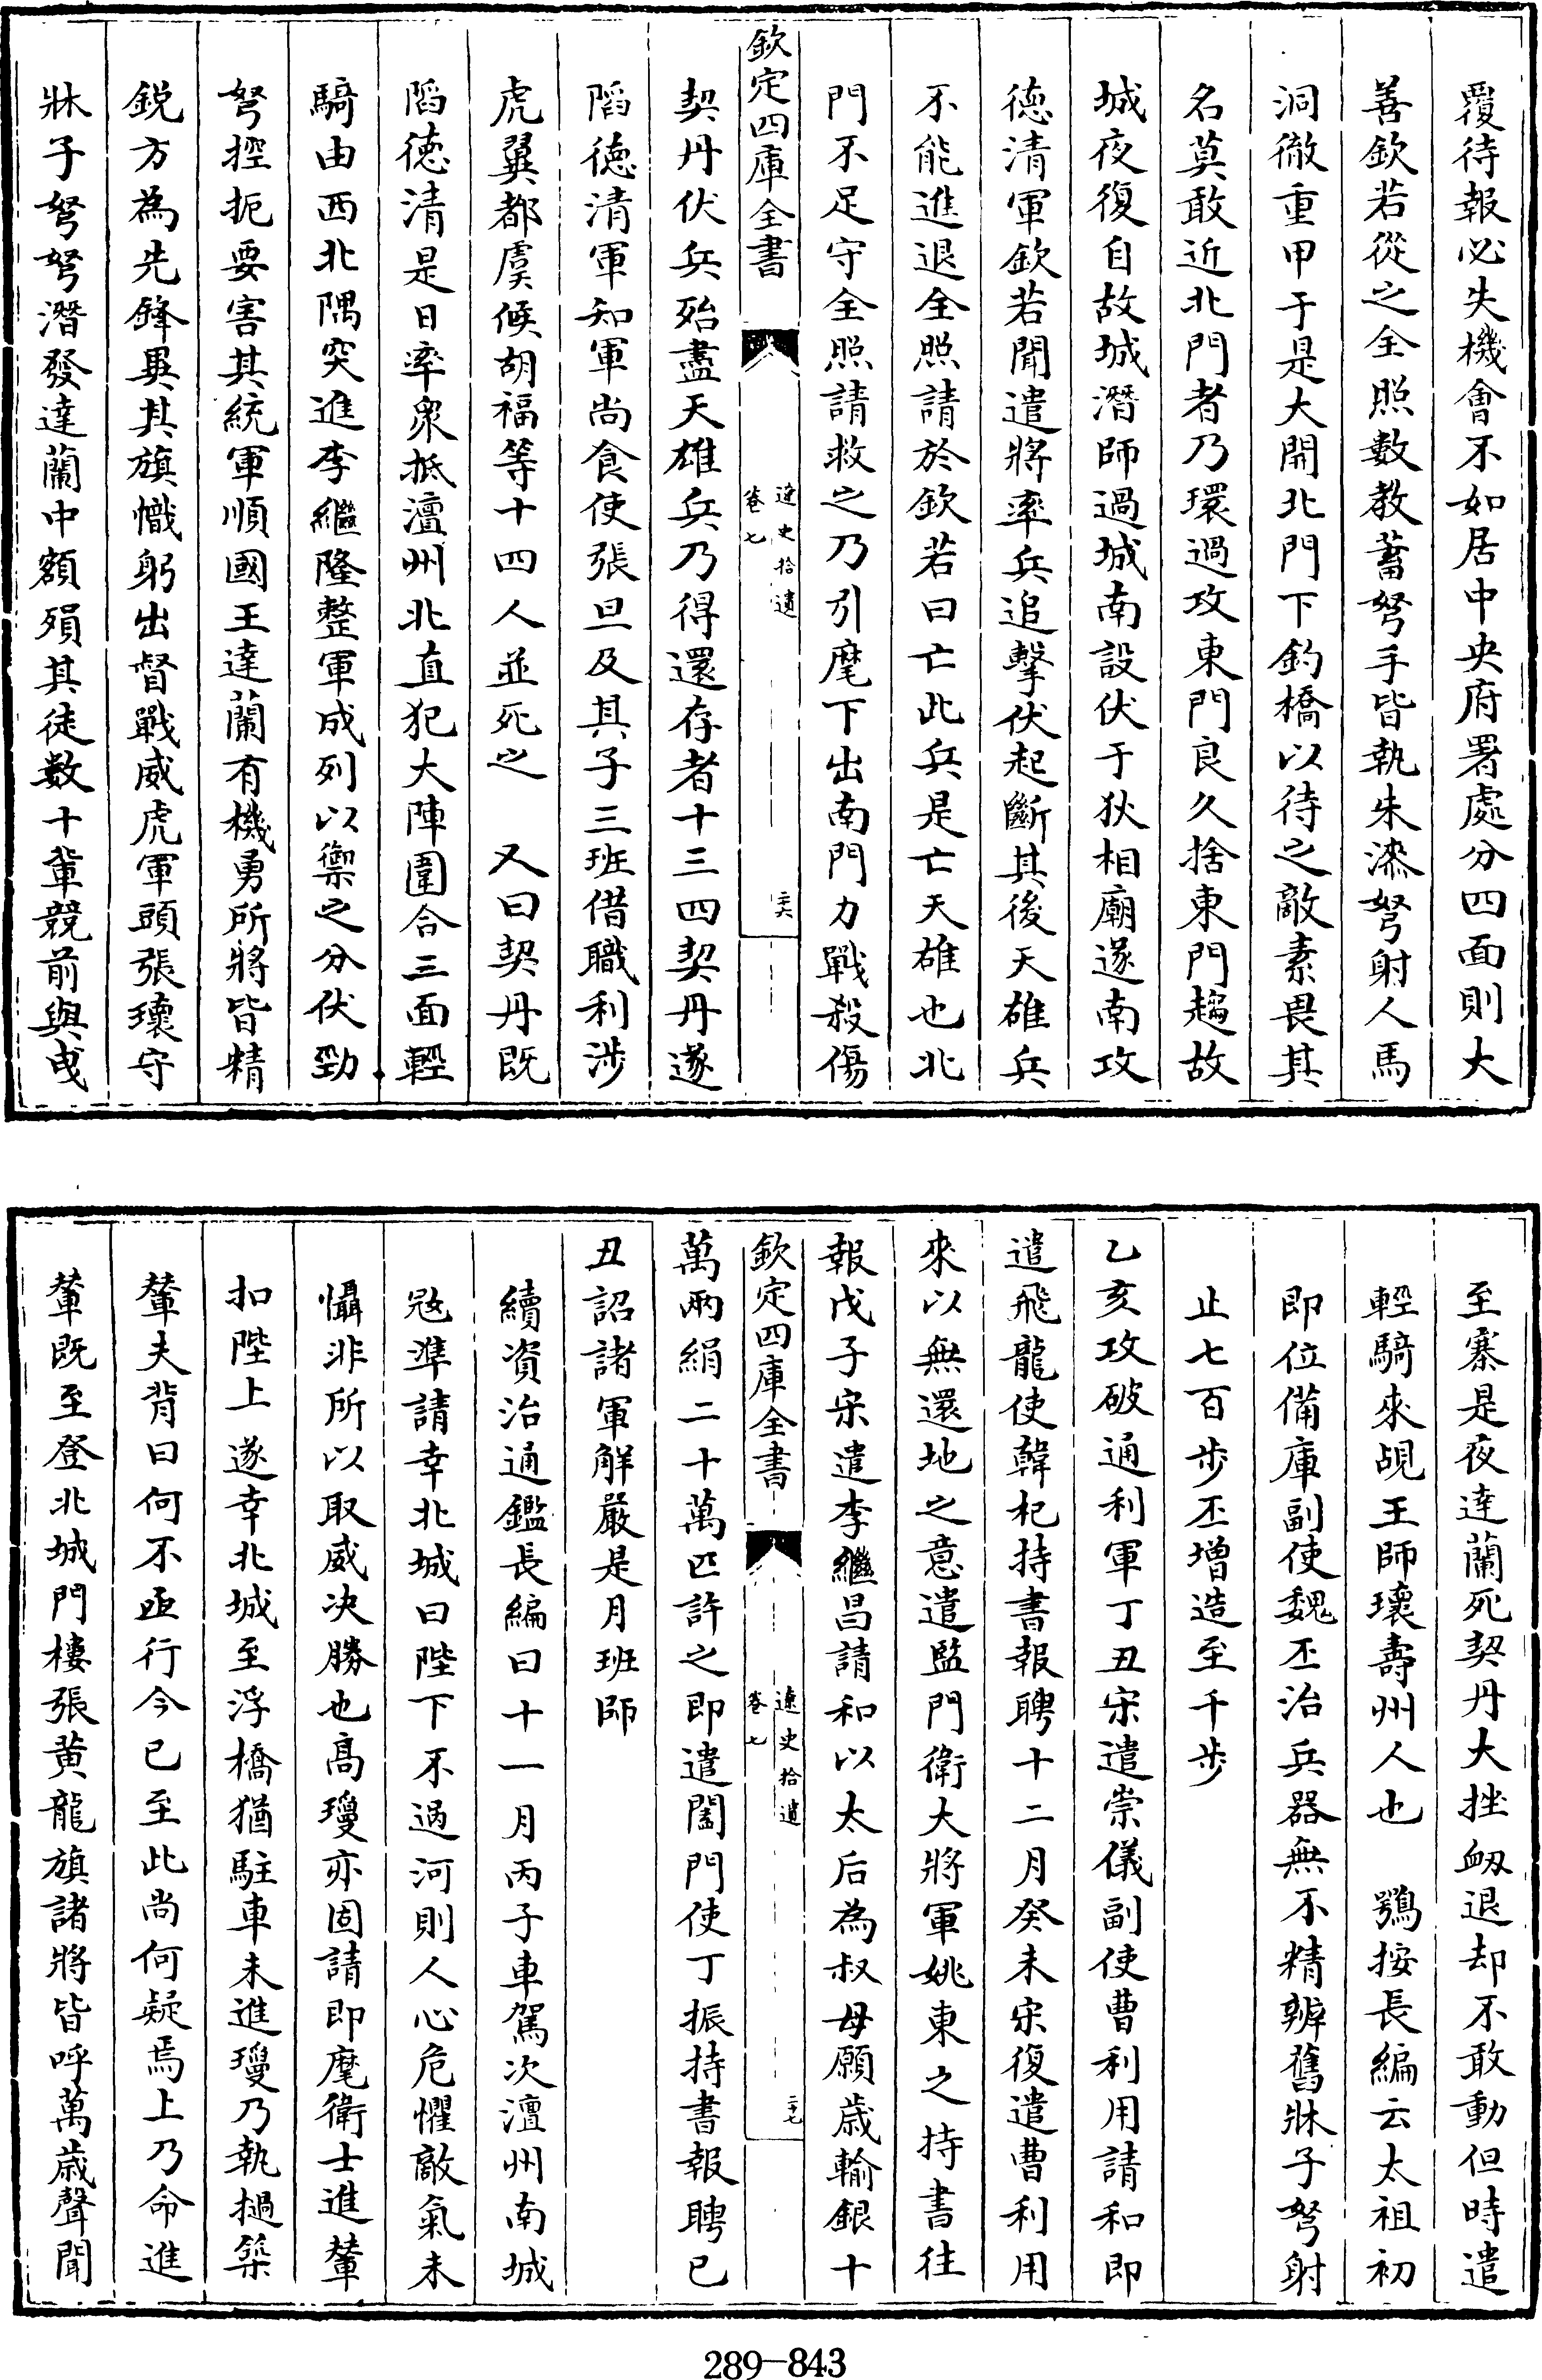 覆待報必失機會不如居中央府署處分四面則大
善欽若從之全照數教蓄弩手皆執朱漆弩射人馬
洞徹重甲于是大開北門下釣橋以待之敵素畏其
名莫敢近北門者乃環過攻東門良久捨東門趨故
城夜復自故城潛師過城南設伏于狄相廟遂南攻
德清軍欽若聞遣將率兵追擊伏起斷其後天雄兵
不能進退全照請於欽若曰亡此兵是亡天雄也北
門不足守全照請救之乃引麾下出南門力戰殺傷
欽定四庫全書
遼史拾遺
卷七
三六
契丹伏兵殆盡天雄兵乃得還存者十三四契丹遂
陷德清軍知軍尚食使張旦及其子三班借職利涉
虎翼都虞候胡福等十四人並死之　又曰契丹既
陷德清是日率衆抵澶州北直犯大陣圍合三面輕
騎由西北隅突進李繼隆整軍成列以禦之分伏勁
弩控扼要害其統軍順國王達蘭有機勇所將皆精
鋭方為先鋒異其旗幟躬出督戰威虎軍頭張瓌守
牀子弩弩潛發達蘭中額殞其徒數十輩競前輿曳
至寨是夜達蘭死契丹大挫衂退却不敢動但時遣
輕騎來覘王師瓌壽州人也　鶚按長編云太祖初
即位備庫副使魏丕治兵器無不精辦舊牀子弩射
止七百步丕增造至千步
乙亥攻破通利軍丁丑宋遣崇儀副使曹利用請和即
遣飛龍使韓杞持書報聘十二月癸未宋復遣曹利用
來以無還地之意遣監門衛大將軍姚東之持書往
報戊子宋遣李繼昌請和以太后為叔母願歳輸銀十
欽定四庫全書
遼史拾遺
卷七
三七
萬兩絹二十萬匹許之即遣閤門使丁振持書報聘已
丑詔諸軍解嚴是月班師
續資治通鑑長編曰十一月丙子車駕次澶州南城
宼準請幸北城曰陛下不過河則人心危懼敵氣未
懾非所以取威决勝也高瓊亦固請即麾衛士進輦
扣陛上遂幸北城至浮橋猶駐車未進瓊乃執撾築
輦夫背曰何不亟行今已至此尚何疑焉上乃命進
輦既至登北城門樓張黄龍旗諸將皆呼萬歳聲聞
289—843